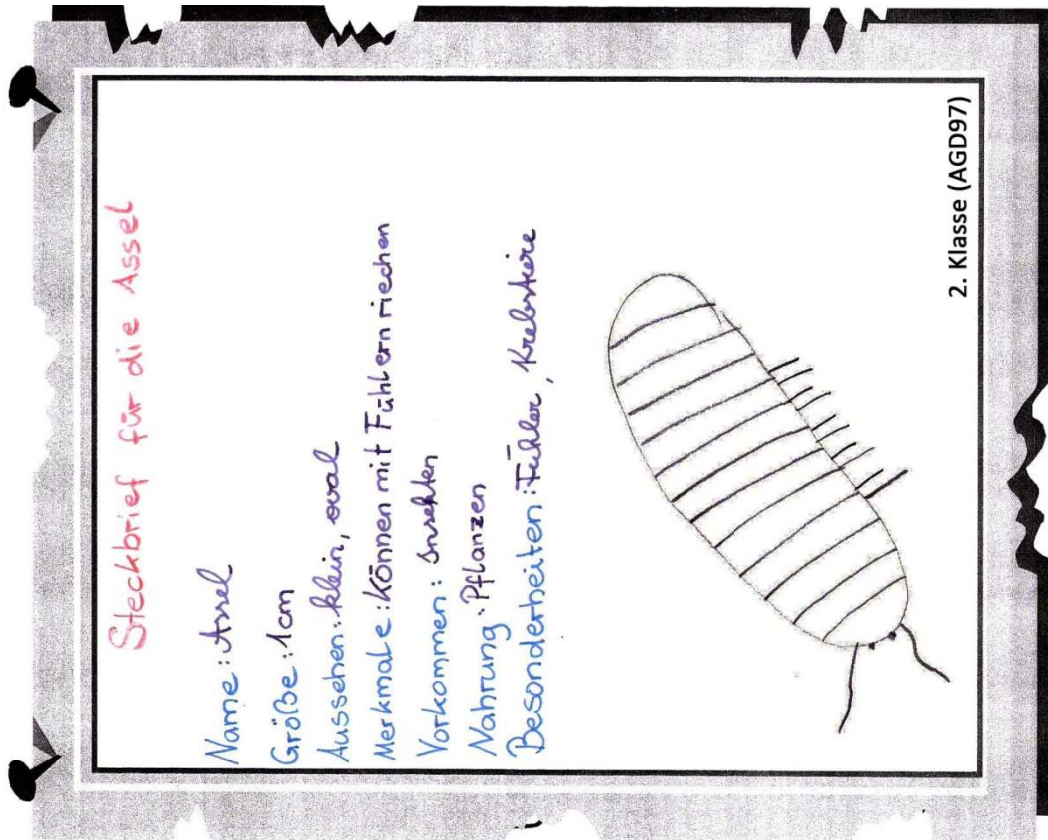 Steckbrief für die Assel
Name: Assel
Größe: 1cm
Aussehen: klein, oval
Merkmale: Können mit Fühlern riechen
Vorkommen: Insekten
Nahrung: Pflanzen
Besonderheiten: Fühler, Krebstiere
2. Klasse (AGD97)